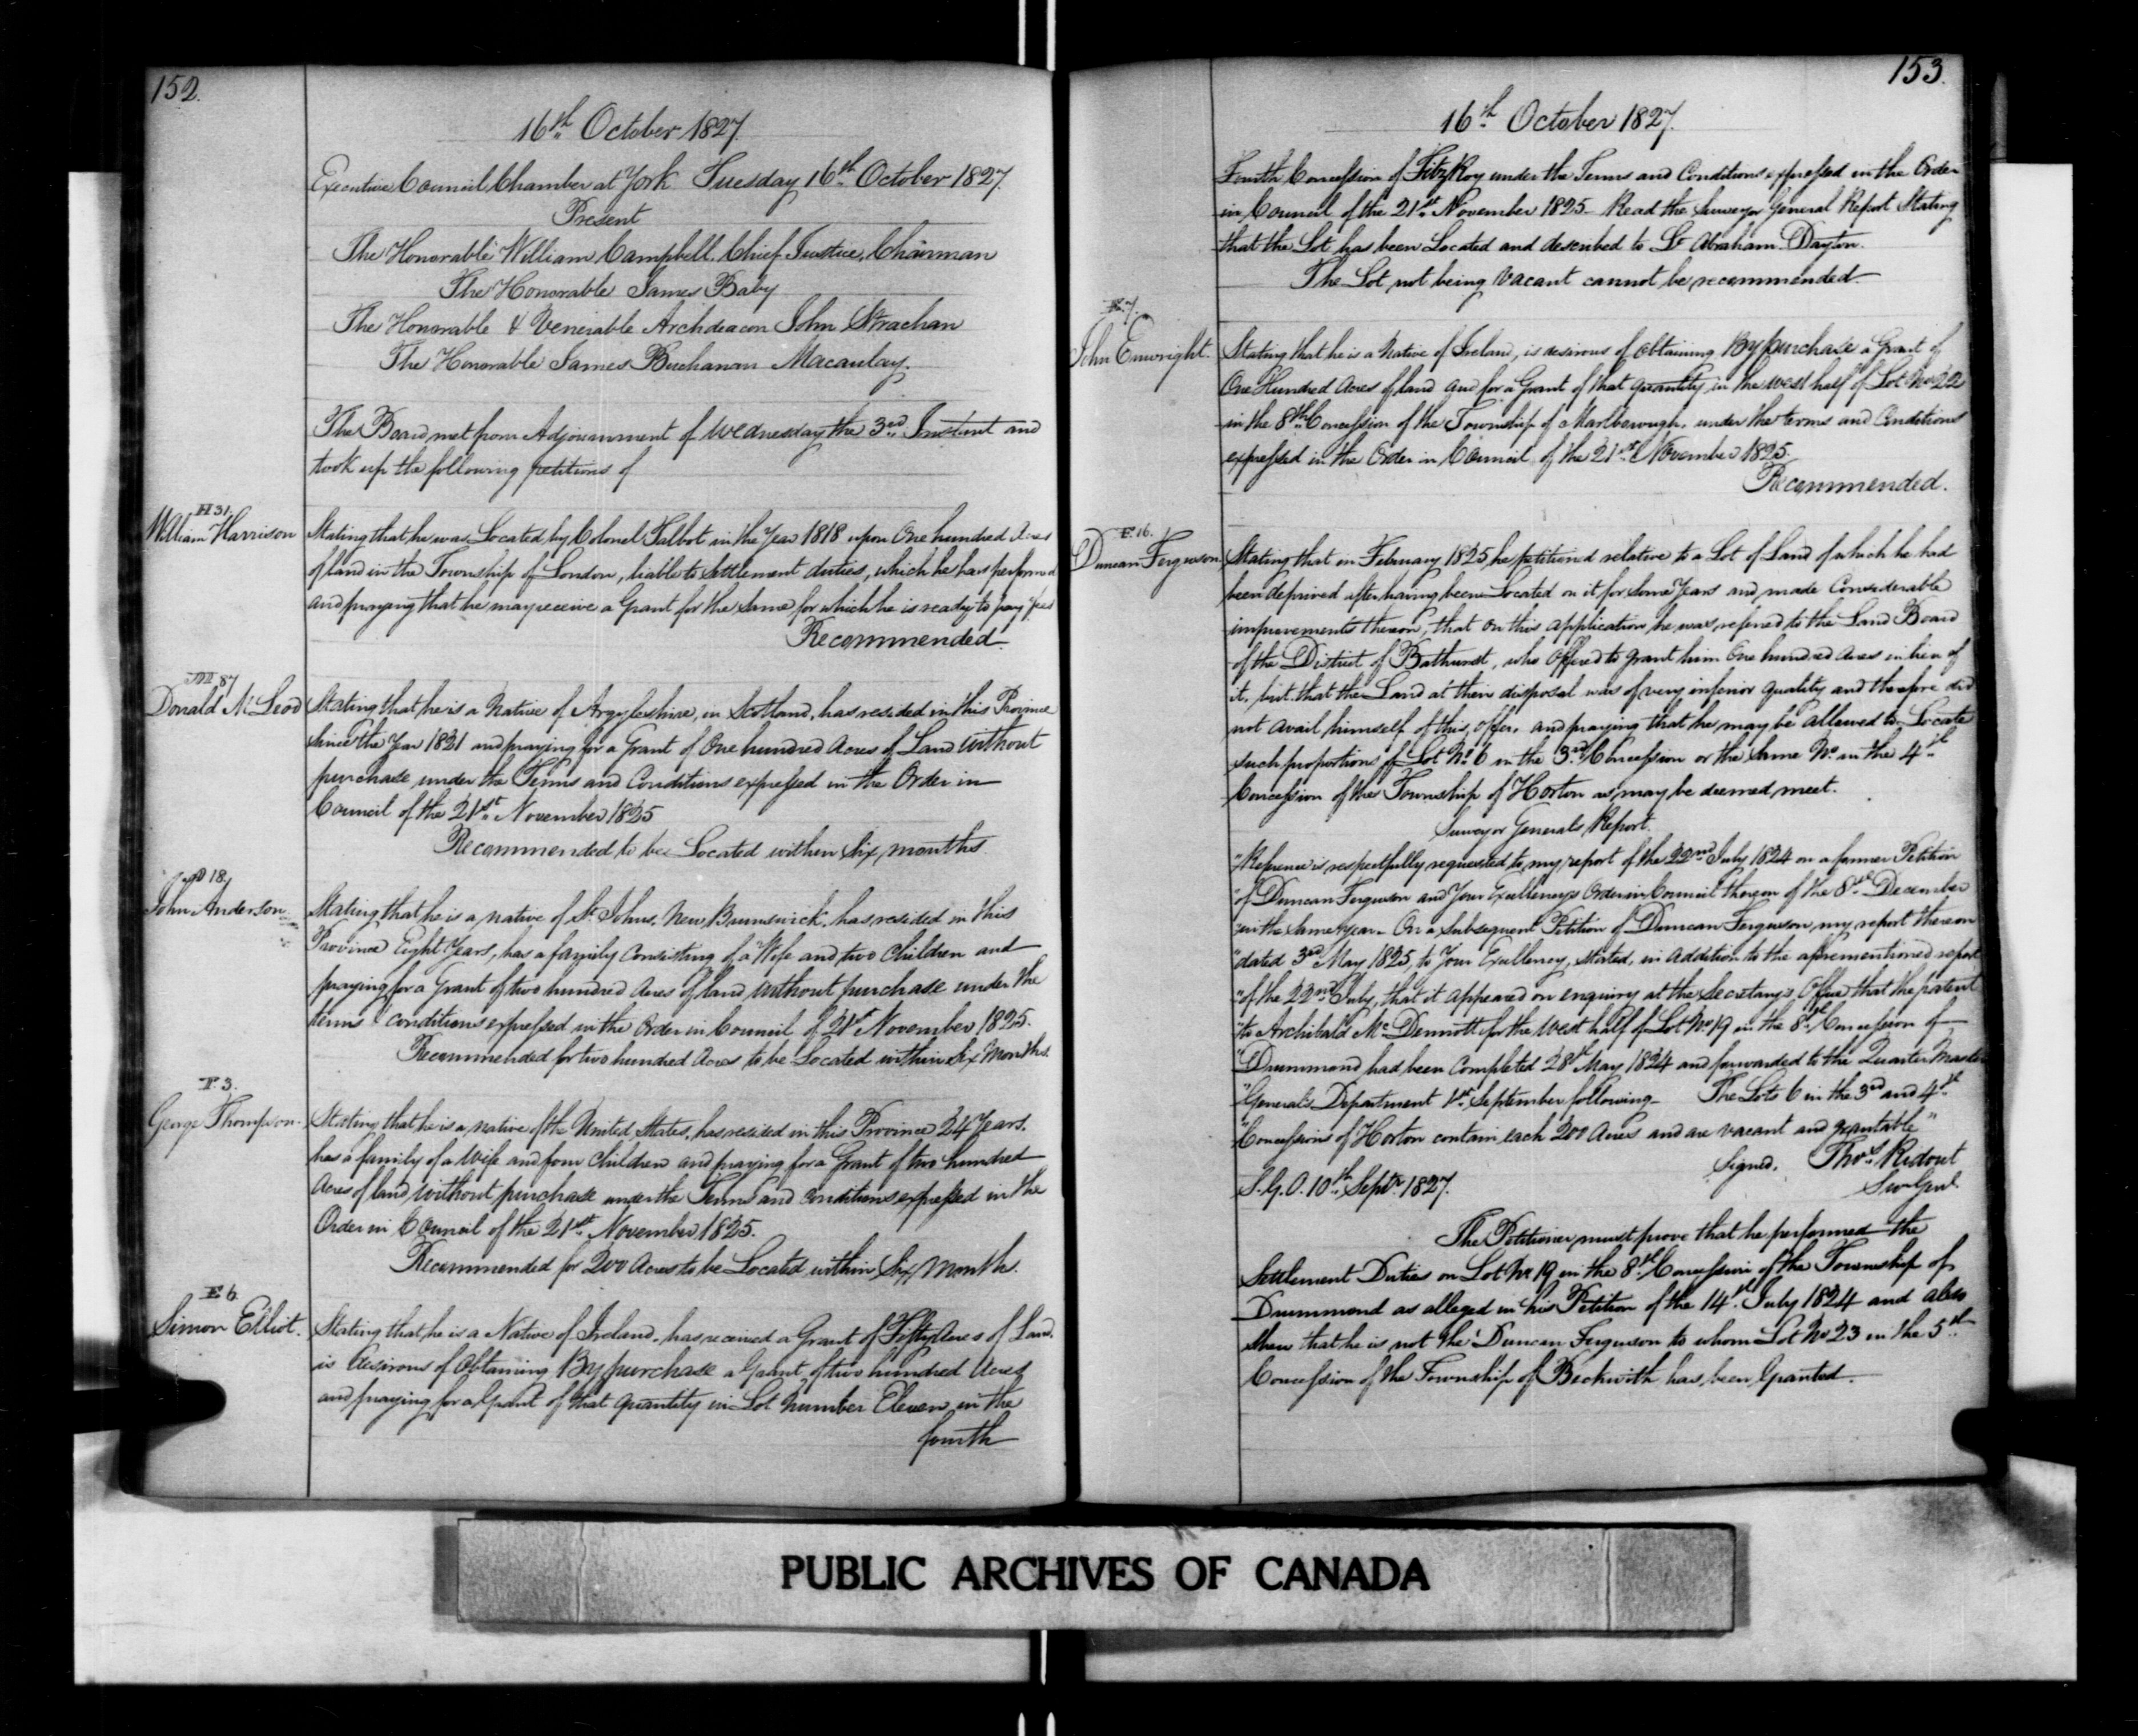 152.
16th October 1827.
Executive Council Chamber at York Tuesday 16th October 1827.
Present
The Honorable William Campbell, Chief Justice, Chairman
The Honorable James Baby
The Honorable & Venerable Archdeacon John Strachan
The Honorable James Buchanan Macaulay.
The Board met from Adjournment of Wednesday the 3rd Instant and
took up the following petitions of
H 31.
William Harrison
Stating that he was Located by Colonel Talbot in the Year 1818 upon One hundred Acres
of land in the Township of London, liable to Settlement duties, which he has performed
and praying that he may receive a Grant for the Same for which he is ready to pay fees
Recommended.
M 87
Donald McLeod
Stating that he is a Native of Argyleshire, in Scotland, has resided in this Province
Since the Year 1821 and praying for a Grant of One hundred Acres of Land without
purchase under the Terms and Conditions expressed in the Order in
Council of the 21st November 1825
Recommended to be Located within Six months
18.
John Anderson
Stating that he is a native of St. Johns, New Brunswick, has resided in this
Province Eight Years, has a family Consisting of a Wife and two Children and
praying for a Grant of two hundred Acres of land without purchase under the
terms & conditions expressed in the Order in Council of 21st November 1825.
Recommended for two hundred Acres to be Located within Six Months.
T. 3.
George Thompson.
Stating that he is a native of the United States, has resided in this Province 24 Years.
has a family of a Wife and four Children and praying for a Grant of two hundred
Acres of land without purchase under the Terms and Conditions expressed in the
Order in Council of the 21st November 1825.
Recommended for 200 Acres to be Located within Six Month.
E 6
Simon Elliot.
Stating that he is a Native of Ireland, has received a Grant of Fifty Acres of Land.
is desirous of Obtaining By purchase a Grant of two hundred Acres
and praying for a Grant of that quantity in Lot Number Eleven in the
fourth
153.
16th October 1827.
Fourth Concession of Fitz Roy under the Terms and Conditions expressed in the Order
in Council of the 21st November 1825 - Read the Surveyor General Report Stating
that the Lot has been Located and described to Lt Abraham Dayton.
The Lot not being Vacant cannot be recommended.
E. 7.
John Enwright.
Stating that he is a Native of Ireland, is desirous of Obtaining By purchase a Grant of
One Hundred Acres of land and for a Grant of that quantity in the West half of Lot No 22
in the 8th Concession of the Township of Marlborough, under the terms and Conditions
expressed in the Order in Council of the 21st November 1825.
Recommended.
F. 16.
Duncan Ferguson
Stating that in February 1825 he petitioned relative to a Lot of Land of which he had
been deprived after having been Located on it for Some Years and made Considerable
improvements thereon, that on this application he was referred to the Land Board
of the District of Bathurst, who Offered to grant him One hundred Acres in lieu of
it, but that the Land at their disposal was of very inferior quality and therefore did
not avail himself of this Offer, and praying that he may be allowed to Locate
such proportions of Lot No. 6 in the 3rd Concession or the Same No. in the 4th
Concession of the Township of Horton as may be deemed meet.
Surveyor Generals Report.
"Reference is respectfully requested to my report of the 22nd July 1824 on a former Petition
"of Duncan Ferguson and Your Excellency's Order in Council thereon of the 8th December
"in the Same Year - On a Subsequent Petition of Duncan Ferguson my report thereon
"dated 3rd May 1825, to Your Excellency, stated, in Addition to the aforementioned report
"of the 22nd July, that it appeared on enquiry at the Secretary's Office that the patent
"to Archibald McDermott for the West half of Lot No 19 in the 8th Concession of
"Drummond had been Completed 28th May 1824 and forwarded to the Quarter Master
"General's Department 1st September following - The Lots 6 in the 3rd and 4th
"Concessions of Horton contain each 200 Acres and are vacant and grantable"
Signed. Thos. Ridout
S. G. O. 10th Septr. 1827.
Sur Genl.
The Petitioner must prove that he performed the
Settlement Duties on Lot No 19 in the 8th Concession of the Township of
Drummond as alleged in his Petition of the 14th July 1824 and also
shew that he is not the Duncan Ferguson to whom Lot No 23 in the 5th
Concession of the Township of Beckwith has been Granted.
PUBLIC ARCHIVES OF CANADA